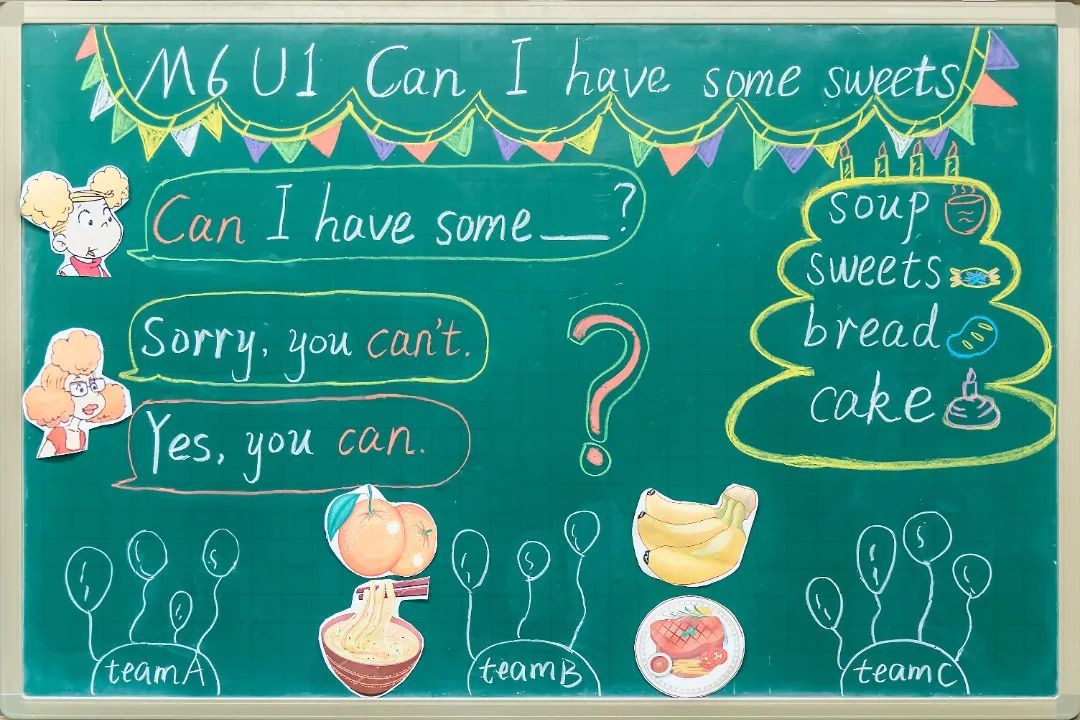 M6 U1 Can I have some sweets
Can I have some ___?
Sorry, you can't.
Yes, you can.
soup
sweets
bread
cake
team A
team B
team C